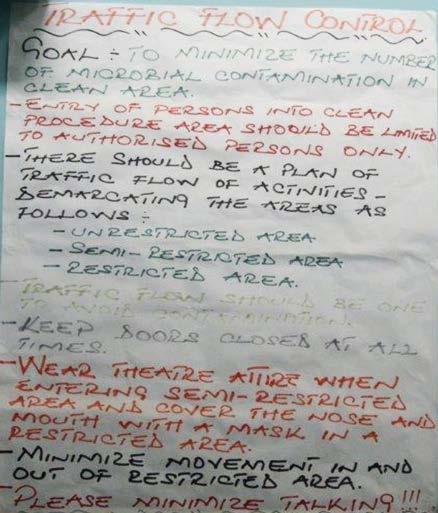 TRAFFIC FLOW CONTROL
GOAL :- TO MINIMIZE THE NUMBER
OF MICROBIAL CONTAMINATION IN
CLEAN AREA.
- ENTRY OF PERSONS INTO CLEAN
PROCEDURE AREA SHOULD BE LIMITED
TO AUTHORISED PERSONS ONLY.
- THERE SHOULD BE A PLAN OF
TRAFFIC FLOW OF ACTIVITIES -
DEMARCATING THE AREAS AS
FOLLOWS :-
- UNRESTRICTED AREA
- SEMI-RESTRICTED AREA
- RESTRICTED AREA.
- TRAFFIC FLOW SHOULD BE ONE
TO AVOID CONTAMINATION.
- KEEP DOORS CLOSED AT ALL
TIMES.
- WEAR THEATRE ATTIRE WHEN
ENTERING SEMI-RESTRICTED
AREA AND COVER THE NOSE AND
MOUTH WITH A MASK IN A
RESTRICTED AREA.
- MINIMIZE MOVEMENT IN AND
OUT OF RESTRICTED AREA.
- PLEASE MINIMIZE TALKING!!!